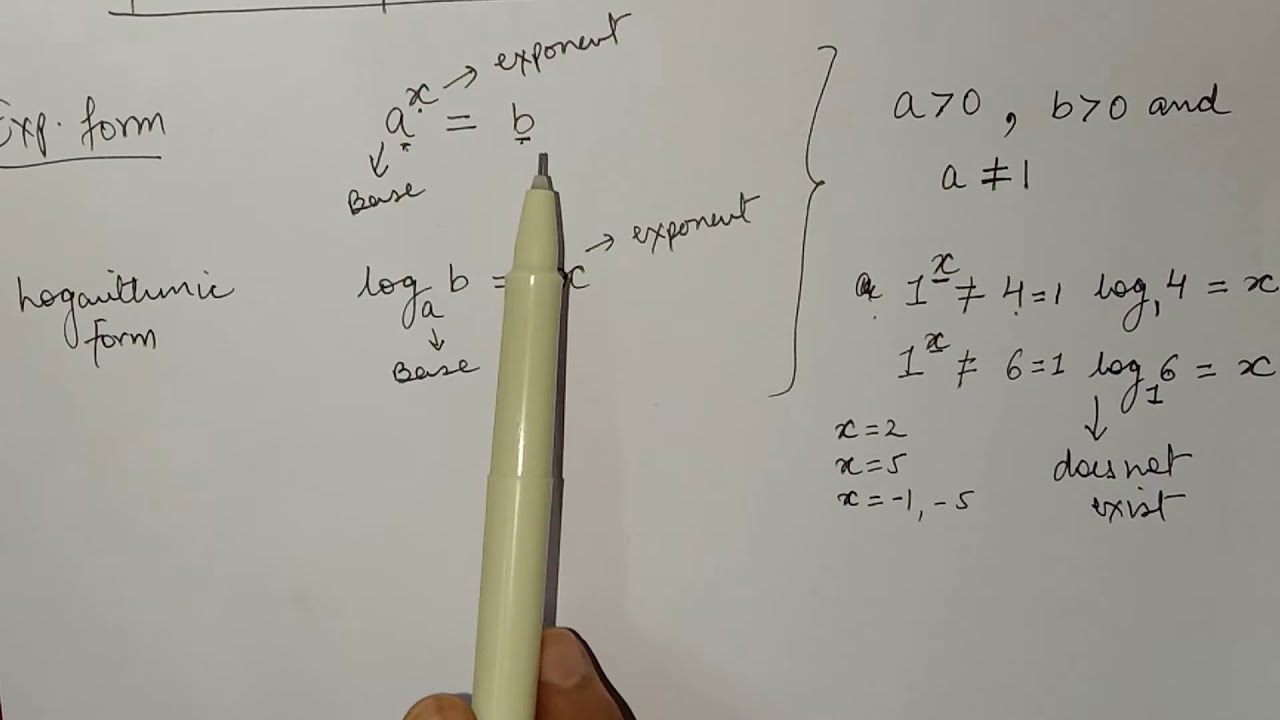 Exp. form
a^x = b → exponent
↓
Base
Logarithmic form
log_a b = x → exponent
↓
Base
a>0, b>0 and
a ≠ 1
1^x ≠ 4=1 log_1 4 = x
1^x ≠ 6=1 log_1 6 = x
↓
does not
exist
x=2
x=5
x=-1, -5